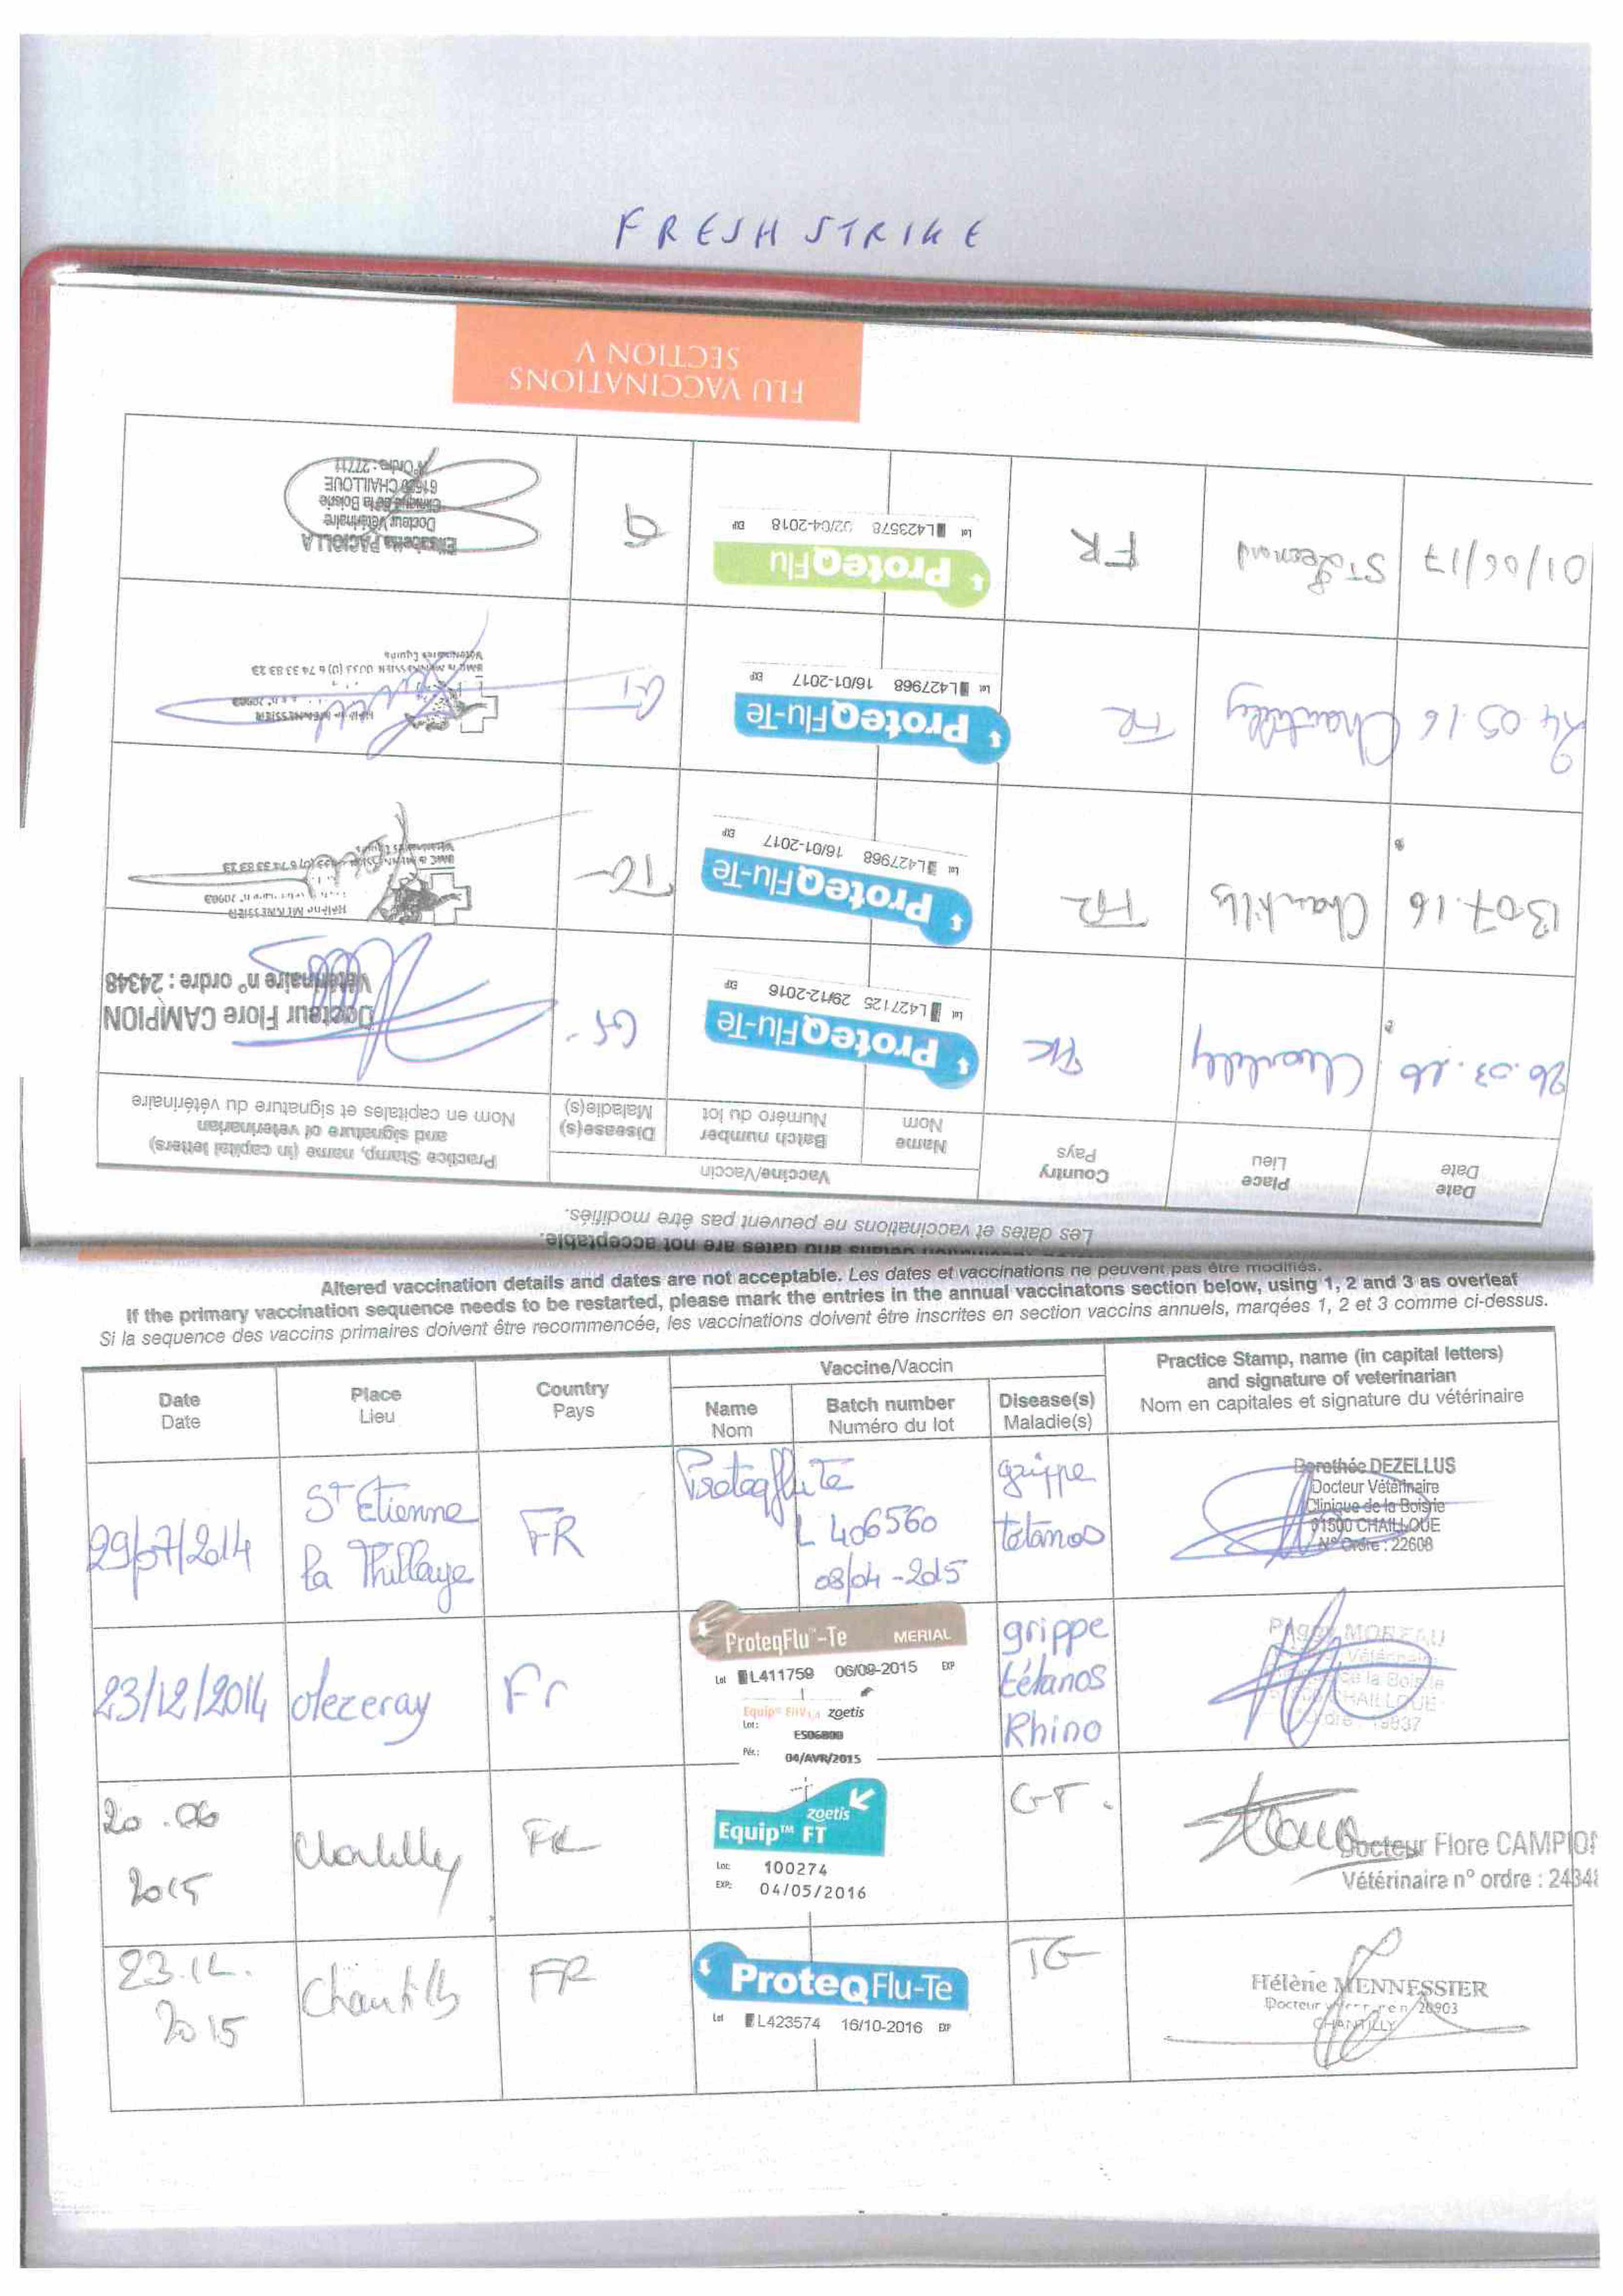 FRESH STRIKE
FLU VACCINATIONS
SECTION V
Les dates et vaccinations ne peuvent pas être modifiées.
Date Date
Place Lieu
Country Pays
Vaccine/Vaccin
Name Nom
Batch number Numéro du lot
Disease(s) Maladie(s)
Practice Stamp, name (in capital letters)
and signature of veterinarian
Nom en capitales et signature du vétérinaire
26.03.16 Chantilly FR
ProteqFlu-Te
Lot L427125 29/12-2016 EXP
GT
Docteur Flore CAMPION
Vétérinaire n° ordre : 24348
13.07.16 Chantilly FR
ProteqFlu-Te
Lot L427968 16/01-2017 EXP
TG
Hélène MENNESSIER
24.05.16 Chantilly FR
ProteqFlu-Te
Lot L427968 16/01-2017 EXP
GT
Hélène MENNESSIER
Vétérinaires Equins
01/06/17 St Leonard FR
ProteqFlu
Lot L423578 02/04-2018 EXP
G
Elisabetta PACIOLLA
Docteur Vétérinaire
Clinique de la Boisrie
61500 CHAILLOUE
N° Ordre : 27711
Altered vaccination details and dates are not acceptable. Les dates et vaccinations ne peuvent pas être modifiés.
If the primary vaccination sequence needs to be restarted, please mark the entries in the annual vaccinatons section below, using 1, 2 and 3 as overleaf
Si la sequence des vaccins primaires doivent être recommencée, les vaccinations doivent être inscrites en section vaccins annuels, marqées 1, 2 et 3 comme ci-dessus.
Date Date
Place Lieu
Country Pays
Vaccine/Vaccin
Name Nom
Batch number Numéro du lot
Disease(s) Maladie(s)
Practice Stamp, name (in capital letters)
and signature of veterinarian
Nom en capitales et signature du vétérinaire
29/07/2014
St Etienne
la Thillaye
FR
Proteqflu Te
L 406560
08/04-2015
grippe
tetanos
Dorothée DEZELLUS
Docteur Vétérinaire
Clinique de la Boisrie
61500 CHAILLOUE
N° Ordre : 22608
23/12/2014
Mezeray
Fr
ProteqFlu™-Te MERIAL
Lot L411759 06/09-2015 EXP
Equip® EHV1,4 zoetis
Lot: ES06800
Pér.: 04/AVR/2015
grippe
tétanos
Rhino
MOREAU
20.06
2015
Chantilly
FR
zoetis
Equip™ FT
Lot: 100274
EXP: 04/05/2016
GT.
Docteur Flore CAMPION
Vétérinaire n° ordre : 24348
23.12.
2015
Chantilly
FR
ProteqFlu-Te
Lot L423574 16/10-2016 EXP
TG
Hélène MENNESSIER
CHANTILLY